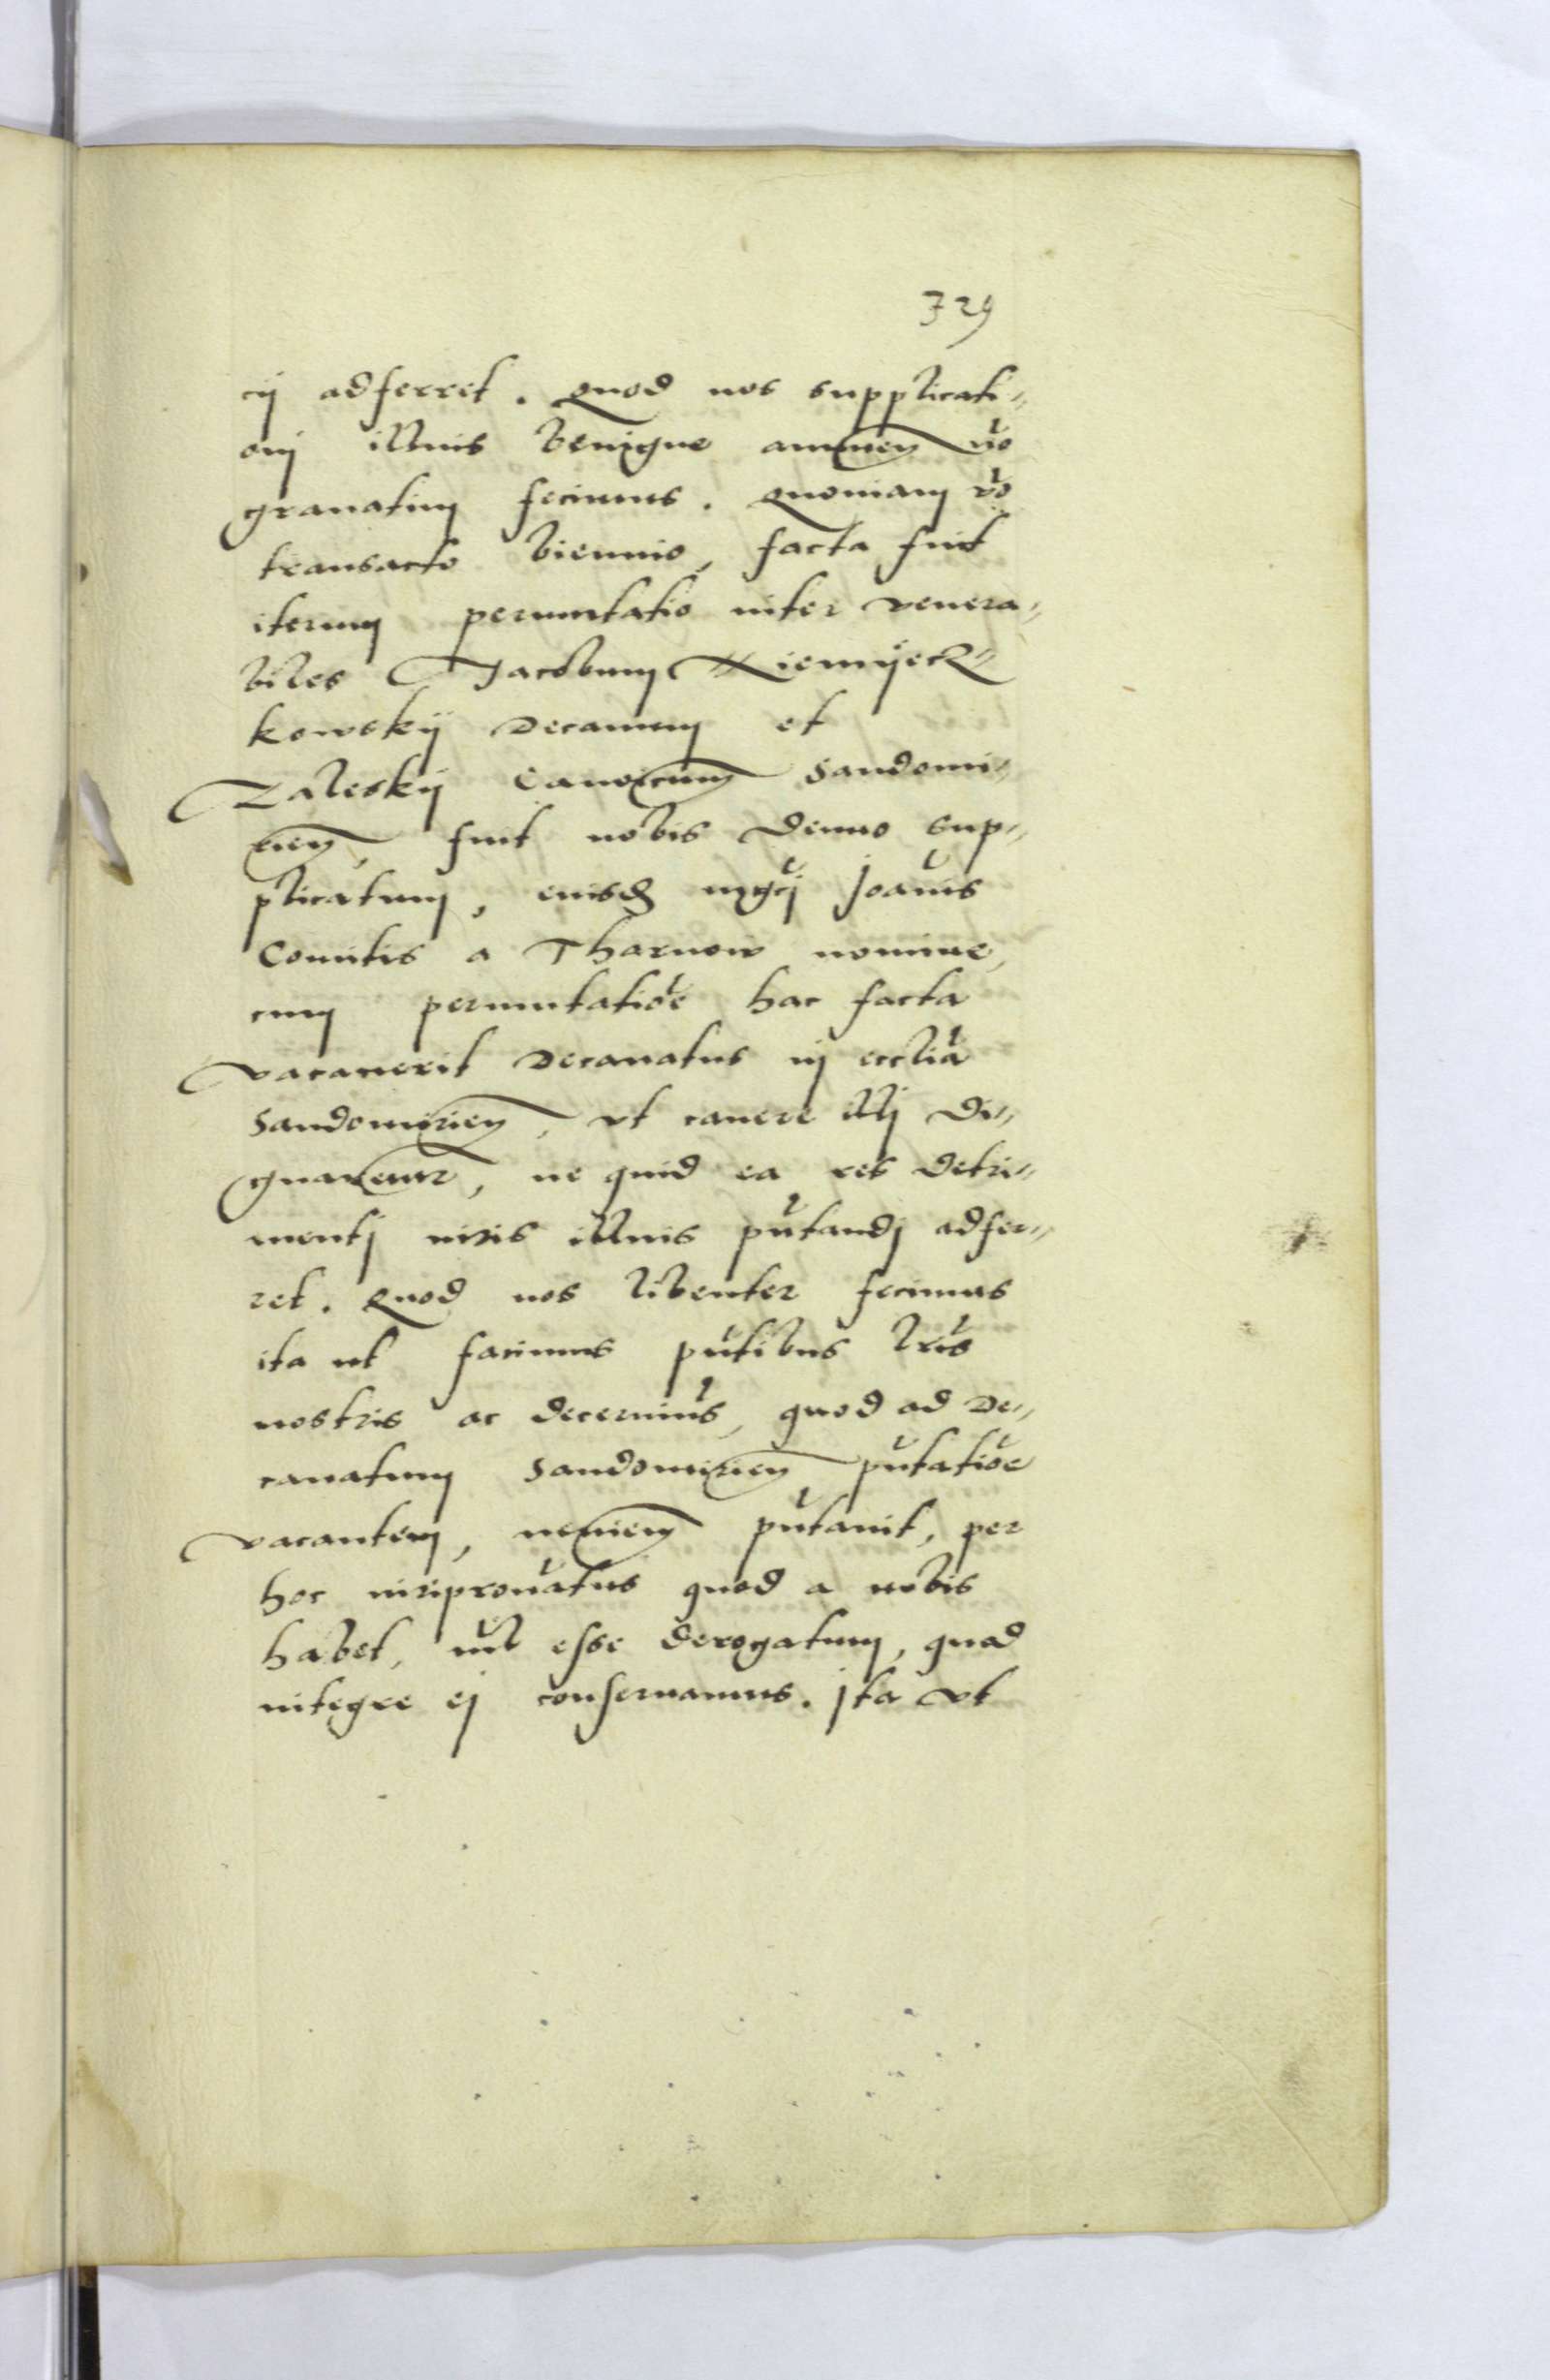 329
cij adferret. Quod nos supplicati-
onj illius benigne annuen no
gravatim fecimus. Quoniam vo
transacto biennio, facta fuit
iterum permutatio inter venera-
biles Jacobum
kowskij Decanum et
Zaleskij Canoicum Sandomi-
rien, fuit nobis denuo sup-
plicatum, eiusd mgcj Joannis
Comitis a Tharnow nomine,
cum permutatioe hac facta
vacaverit Decanatus in ecclia
Sandomirien, ut cavere illj di-
gnaremur, ne quid ea res detri-
mentj iuris illius pntandj adfer-
ret. Quod nos libenter fecimus
ita ut facimus pntibus lris
nostris ac decernims, quod ad De-
canatum Sandomirien pntatioe
vacantem, neminem pntavit, per
hoc iuripronatus quod a nobis
habet, nil esse derogatum, quod
integre ej conservamus. Jta ut